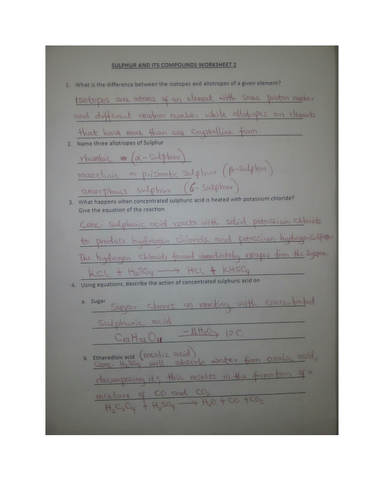 SULPHUR AND ITS COMPOUNDS WORKSHEET 2
1. What is the difference between the isotopes and allotropes of a given element?
Isotopes are atoms of an element with same proton number
and different neutron number while allotropes are elements
that have more than one crystalline form
2. Name three allotropes of Sulphur
rhombic or (α-Sulphur)
monoclinic or prismatic Sulphur (β-Sulphur)
amorphous sulphur (δ-Sulphur)
3. What happens when concentrated sulphuric acid is heated with potassium chloride?
Give the equation of the reaction
Conc Sulphuric acid reacts with solid potassium chloride
to produce hydrogen chloride and potassium hydrogen
The hydrogen chloride formed escapes from the System
KCl + H₂SO₄ → HCl + KHSO₄
4. Using equations, describe the action of concentrated sulphuric acid on
a. Sugar
Sugar chars on reacting with concentrated
Sulphuric acid
-11H₂O 12C
b. Ethanedioic acid (oxalic acid)
Conc. H₂SO₄ will absorb water from oxalic acid,
decomposing it, this results in the formation of a
mixture of CO and CO₂
H₂C₂O₄ + H₂SO₄ → H₂O + CO + CO₂